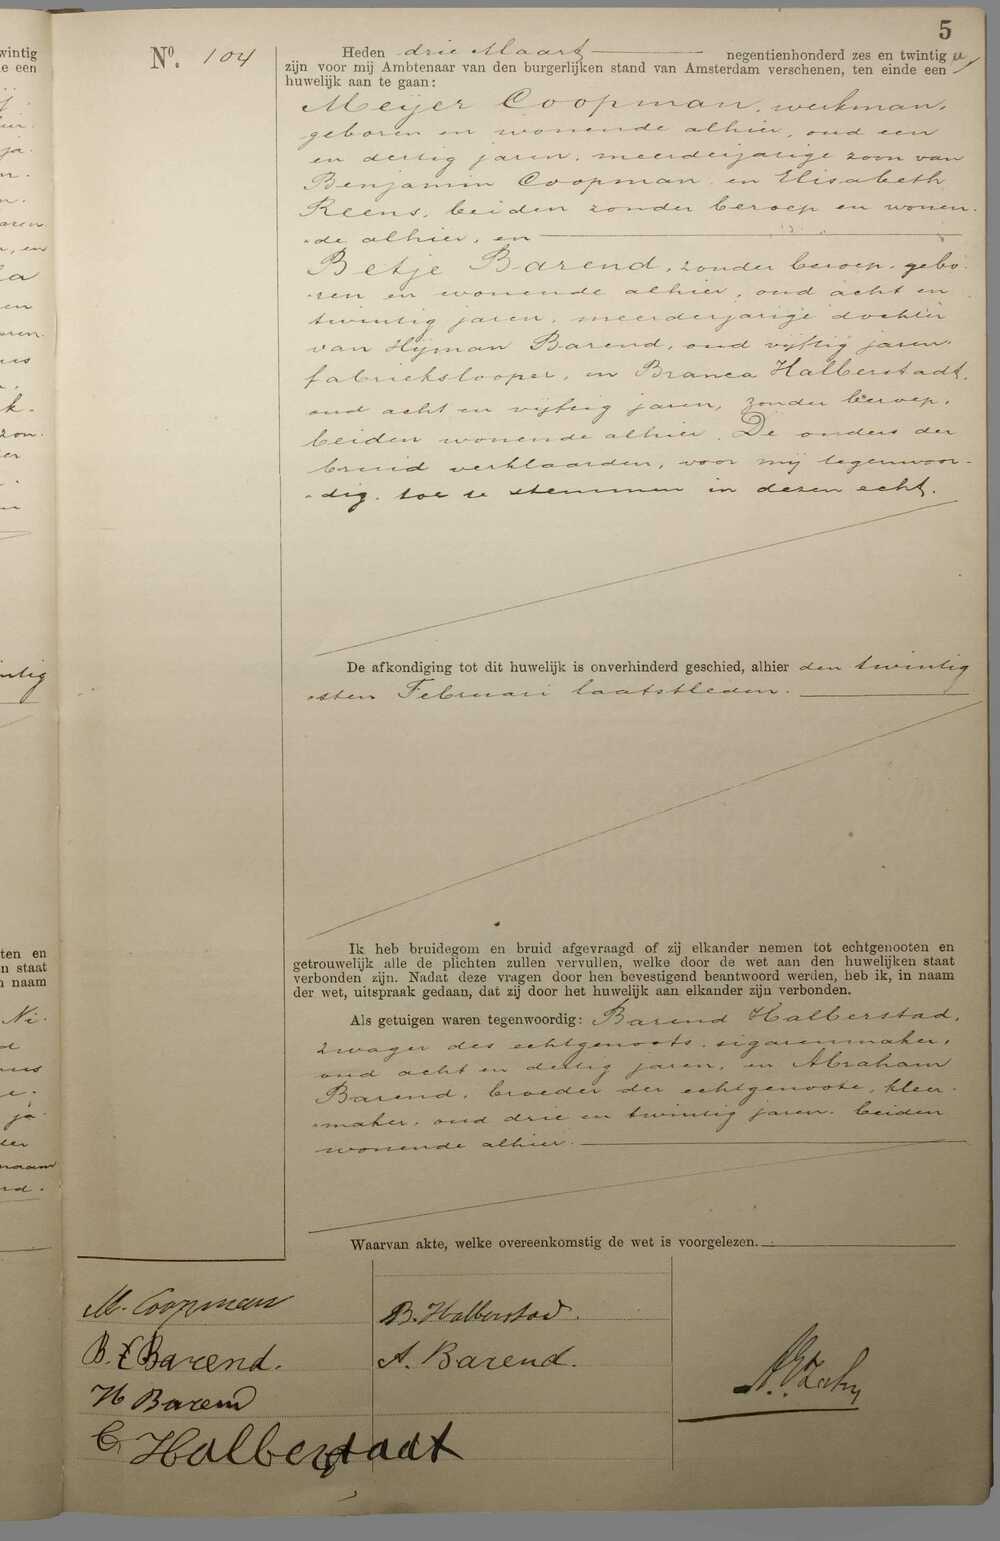 5
Nº. 104
Heden drie Maart negentienhonderd zes en twintig
zijn voor mij Ambtenaar van den burgerlijken stand van Amsterdam verschenen, ten einde een
huwelijk aan te gaan:
Meijer Coopman, werkman,
geboren en wonende alhier, oud een
en dertig jaren, meerderjarige zoon van
Benjamin Coopman en Elisabeth
Reens, beiden zonder beroep en wonen-
-de alhier, en
Betje Barend, zonder beroep, gebo-
-ren en wonende alhier, oud acht en
twintig jaren, meerderjarige dochter
van Hijman Barend, oud vijftig jaren,
fabriekslooper, en Branca Halberstadt,
oud acht en vijftig jaren, zonder beroep,
beiden wonende alhier. De ouders der
bruid verklaarden, voor mij tegenwoor-
-dig, toe te stemmen in dezen echt.
De afkondiging tot dit huwelijk is onverhinderd geschied, alhier den twintig
-sten Februari laatstleden.
Ik heb bruidegom en bruid afgevraagd of zij elkander nemen tot echtgenooten en
getrouwelijk alle de plichten zullen vervullen, welke door de wet aan den huwelijken staat
verbonden zijn. Nadat deze vragen door hen bevestigend beantwoord werden, heb ik, in naam
der wet, uitspraak gedaan, dat zij door het huwelijk aan elkander zijn verbonden.
Als getuigen waren tegenwoordig: Barend Halberstad,
zwager des echtgenoots, sigarenmaker,
oud acht en dertig jaren, en Abraham
Barend, broeder der echtgenoote, kleer-
-maker, oud drie en twintig jaren, beiden
wonende alhier.
Waarvan akte, welke overeenkomstig de wet is voorgelezen.
M. Coopman
B. Barend.
H Barend
B. Halberstad.
A. Barend.
Halberstadt